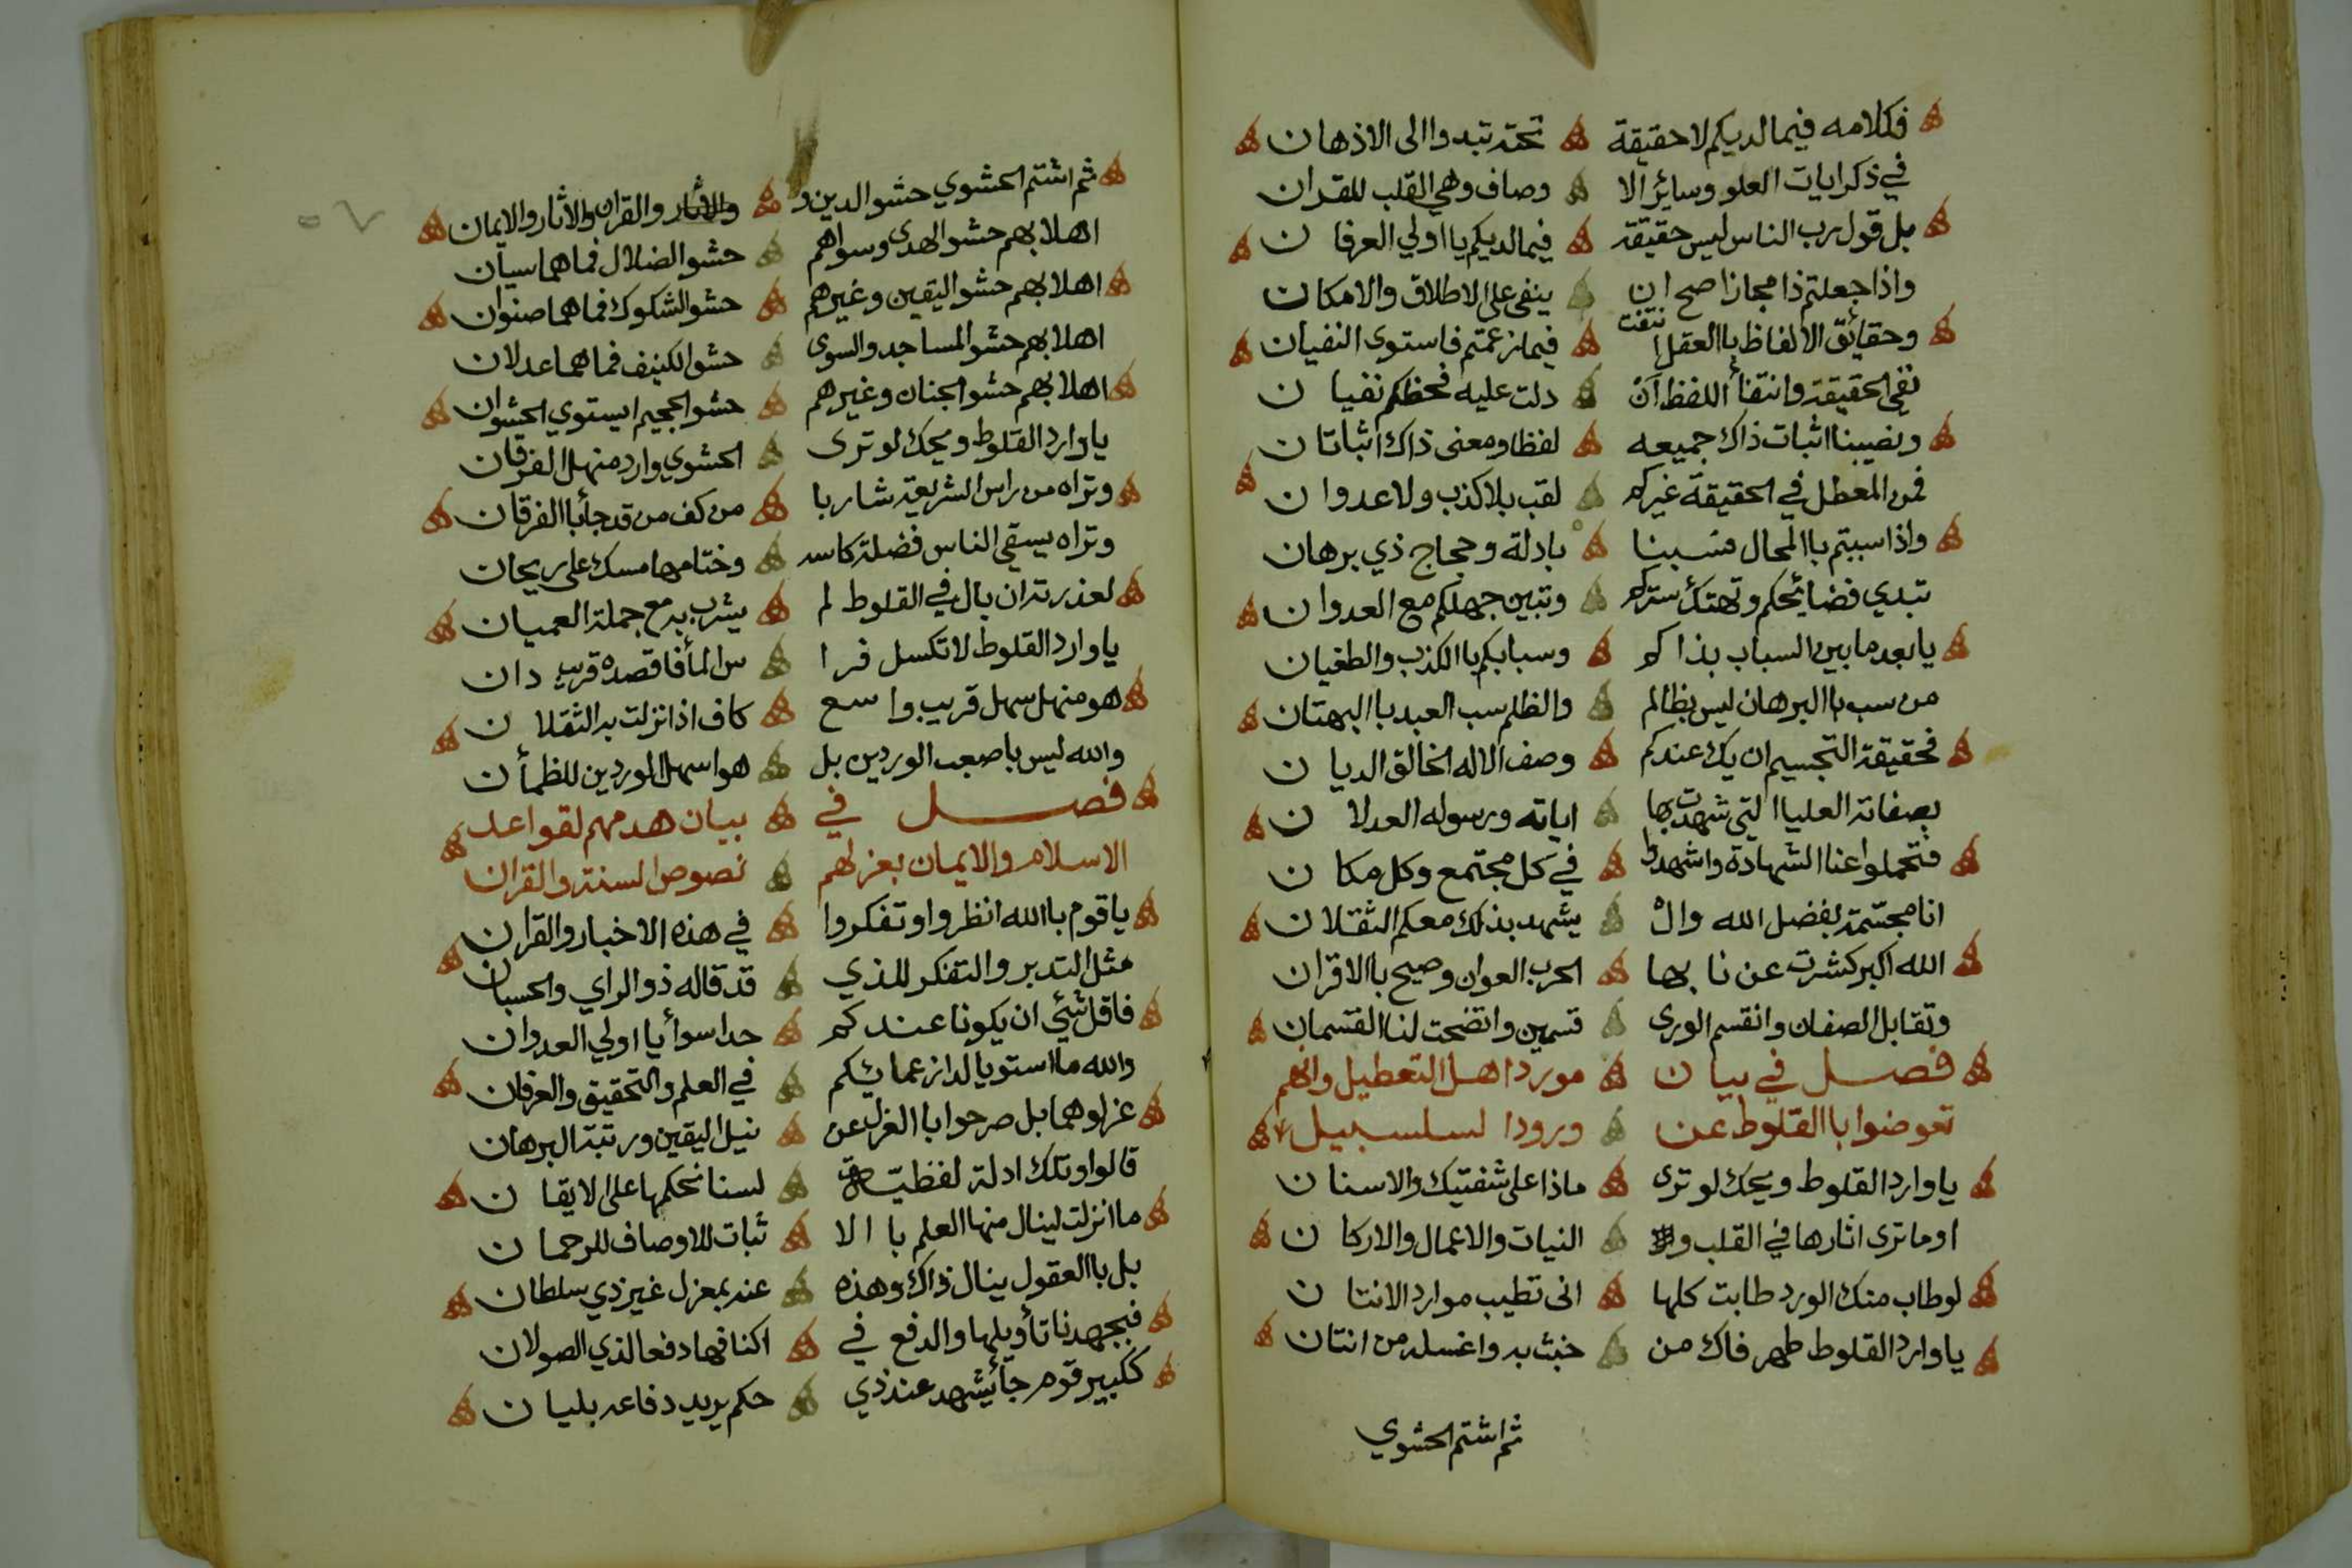 فكلامه فيما لديكم لا حقيقة تحته تبدوا الى الاذهان
في ذكر ايات العلو وسائر الا وصاف وهي القلب للقران
بل قول رب الناس ليس حقيقة فيما لديكم يا اولي العرفان
واذا جعلتم ذا مجازا صح ان ينفى على الاطلاق والامكان
وحقائق الالفاظ باالعقل انتفت فيما زعمتم فاستوى النفيان
نفي الحقيقة وانتفأ اللفظ ان دلت عليه فحظكم نفيان
ونصيبنا اثبات ذاك جميعه لفظا ومعنى ذاك اثباتان
فمن المعطل في الحقيقة غيركم لقب بلا كذب ولا عدوان
واذا سببتم باالمحال فسبنا بادلة وحجاج ذي برهان
تبدي فضائحكم وتهتك ستركم وتبين جهلكم مع العدوان
يا بعد ما بين السباب بذاكم وسبابكم باالكذب والطغيان
من سب باالبرهان ليس بظالم والظلم سب العبد باالبهتان
فحقيقة التجسيم ان يك عندكم وصف الاله الخالق الديان
بصفاته العليا التي شهدت بها اياته ورسوله العدلان
فتحملوا عنا الشهادة واشهدوا في كل مجتمع وكل مكان
انا مجسمة بفضل الله وال يشهد بذلك معكم الثقلان
الله اكبر كشرت عن نابها الحرب العوان وصيح باالاقران
وتقابل الصفان وانقسم الورى قسمين واتضحت لنا القسمان
فصل في بيان مورد اهل التعطيل وانهم
تعوضوا باالقلوط عن ورودا لسلسبيل
يا وارد القلوط ويحك لو ترى ماذا على شفتيك والاسنان
اوما ترى اثارها في القلب و النيات والاعمال والاركان
لو طاب منك الورد طابت كلها انى تطيب موارد الانتان
يا وارد القلوط طهر فاك من خبث به واغسله من انتان
ثم اشتم الحشوي
ثم اشتم الحشوي حشو الدين و والقران والاثار والايمان
اهلا بهم حشو الهدى وسواهم حشو الضلال فما هما سيان
اهلا بهم حشو اليقين وغيرهم حشو الشكوك فما هما صنوان
اهلا بهم حشو المساجد والسوى حشو الكنيف فما هما عدلان
اهلا بهم حشو الجنان وغيرهم حشو الجحيم ايستوي الحشوان
يا وارد القلوط ويحك لو ترى الحشوي وارد منهل الفرقان
وتراه من راس الشريعة شاربا من كف من قد جأ باالفرقان
وتراه يسقي الناس فضلة كاسه وختامها مسك على ريحان
لعذرته ان بال في القلوط لم يشرب به مع جملة العميان
يا وارد القلوط لا تكسل فرا س المأ فاقصده قريب دان
هو منهل سهل قريب واسع كاف اذا نزلت به الثقلان
والله ليس باصعب الوردين بل هو اسهل الوردين للظمأن
فصل في بيان هدمهم لقواعد
الاسلام والايمان بعزلهم نصوص السنة والقران
يا قوم باالله انظروا وتفكروا في هذه الاخبار والقران
مثل التدبر والتفكر للذي قد قاله ذو الراي والحسبان
فاقل شئي ان يكونا عندكم حدا سوأ يا اولي العدوان
والله ما استويا لدا زعمائكم في العلم والتحقيق والعرفان
عزلوهما بل صرحوا باالعزل عن نيل اليقين ورتبة البرهان
قالوا وتلك ادلة لفظية لسنا نحكمها على الايقان
ما انزلت لينال منها العلم باالا ثبات للاوصاف للرحمان
بل باالعقول ينال ذاك وهذه عنه بمعزل غير ذي سلطان
فبجهدنا تأويلها والدفع في اكنافها دفعا لذي الصولان
ككبير قوم جأ يشهد عند ذي حكم يريد دفاعه بليان